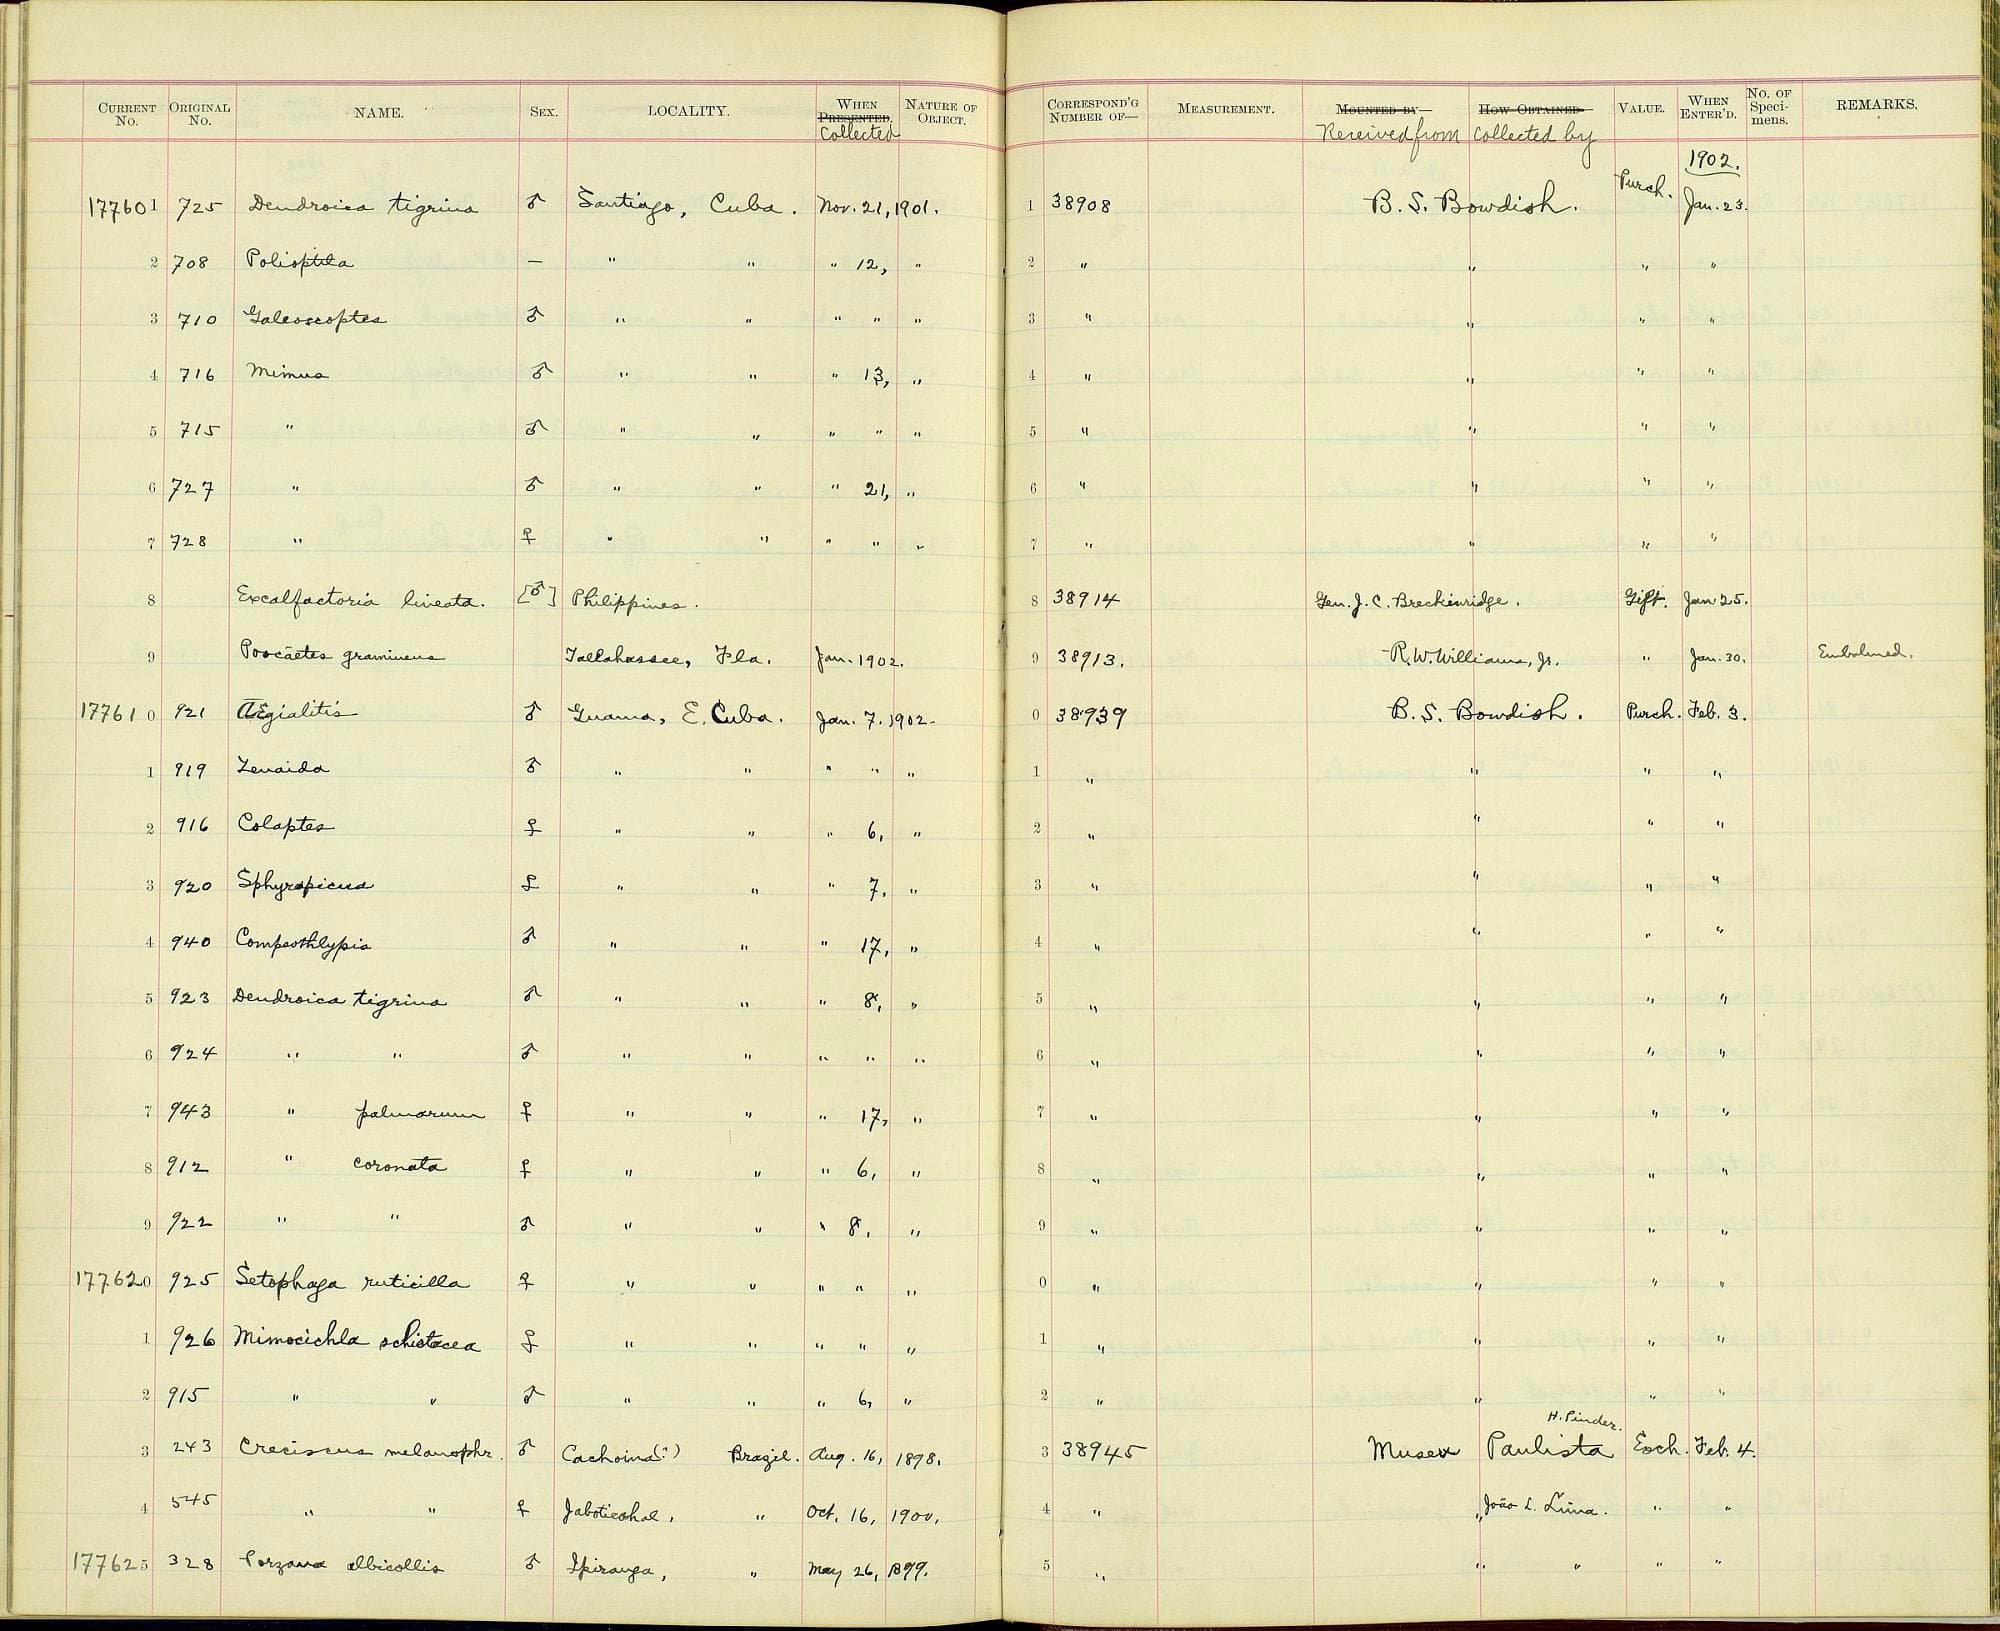 CURRENT No. ORIGINAL No. NAME. SEX. LOCALITY. WHEN PRESENTED. Collected NATURE OF OBJECT. CORRESPOND'G NUMBER OF— MEASUREMENT. MOUNTED BY— Received from HOW OBTAINED Collected by VALUE. WHEN ENTER'D. No. OF Speci-mens. REMARKS.
1902.
177601 725 Dendroica tigrina ♂ Santiago, Cuba. Nov. 21, 1901. 1 38908 B. S. Bowdish. Purch. Jan. 23.
2 708 Polioptila — " " " 12, " 2 " " " "
3 710 Galeoscoptes ♂ " " " " " 3 " " " "
4 716 Mimus ♂ " " " 13, " 4 " " " "
5 715 " ♂ " " " " " 5 " " " "
6 727 " ♂ " " " 21, " 6 " " " "
7 728 " ♀ " " " " " 7 " " " "
8 Excalfactoria lineata. [♂] Philippines. 8 38914 Gen. J. C. Breckinridge. Gift. Jan 25.
9 Poocaetes gramineus Tallahassee, Fla. Jan. 1902. 9 38913. R. W. Williams, Jr. " Jan. 30. Embalmed.
177610 921 Ægialitis ♂ Guama, E. Cuba. Jan. 7. 1902. 0 38939 B. S. Bowdish. Purch. Feb. 3.
1 919 Zenaida ♂ " " " " " 1 " " " "
2 916 Colaptes ♀ " " " 6, " 2 " " " "
3 920 Sphyrapicus ♀ " " " 7, " 3 " " " "
4 940 Compsothlypis ♂ " " " 17, " 4 " " " "
5 923 Dendroica tigrina ♂ " " " 8, " 5 " " " "
6 924 " " ♂ " " " " " 6 " " " "
7 943 " palmarum ♀ " " " 17, " 7 " " " "
8 912 " coronata ♀ " " " 6, " 8 " " " "
9 922 " " ♂ " " " 8, " 9 " " " "
177620 925 Setophaga ruticilla ♀ " " " " " 0 " " " "
1 926 Mimocichla schistacea ♀ " " " " " 1 " " " "
2 915 " " ♂ " " " 6, " 2 " " " "
H. Pinder.
3 243 Creciscus melanophr. ♂ Cachoina(?) Brazil. Aug. 16, 1898. 3 38945 Museu Paulista Exch. Feb. 4.
4 545 " " ♀ Jaboticabal, " Oct. 16, 1900. 4 " " João L. Lima. " "
177625 328 Porzana albicollis ♂ Ipiranga, " May 26, 1899. 5 " " " " "